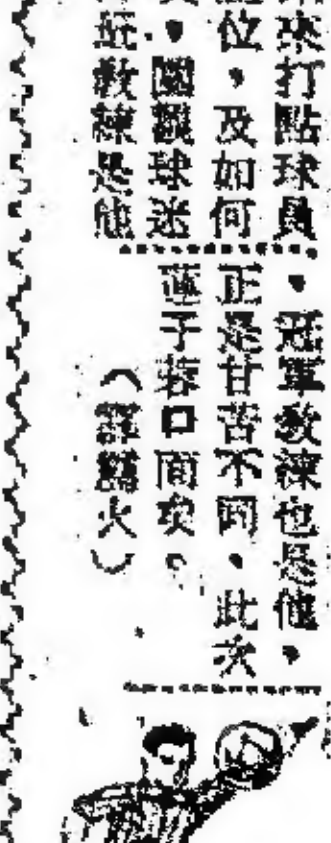 來打點球員
位，及如何
，圍觀球迷
教練是他
、冠軍教練也是他，
正是甘苦不同、此次
蓮子蓉口面矣。
（火）